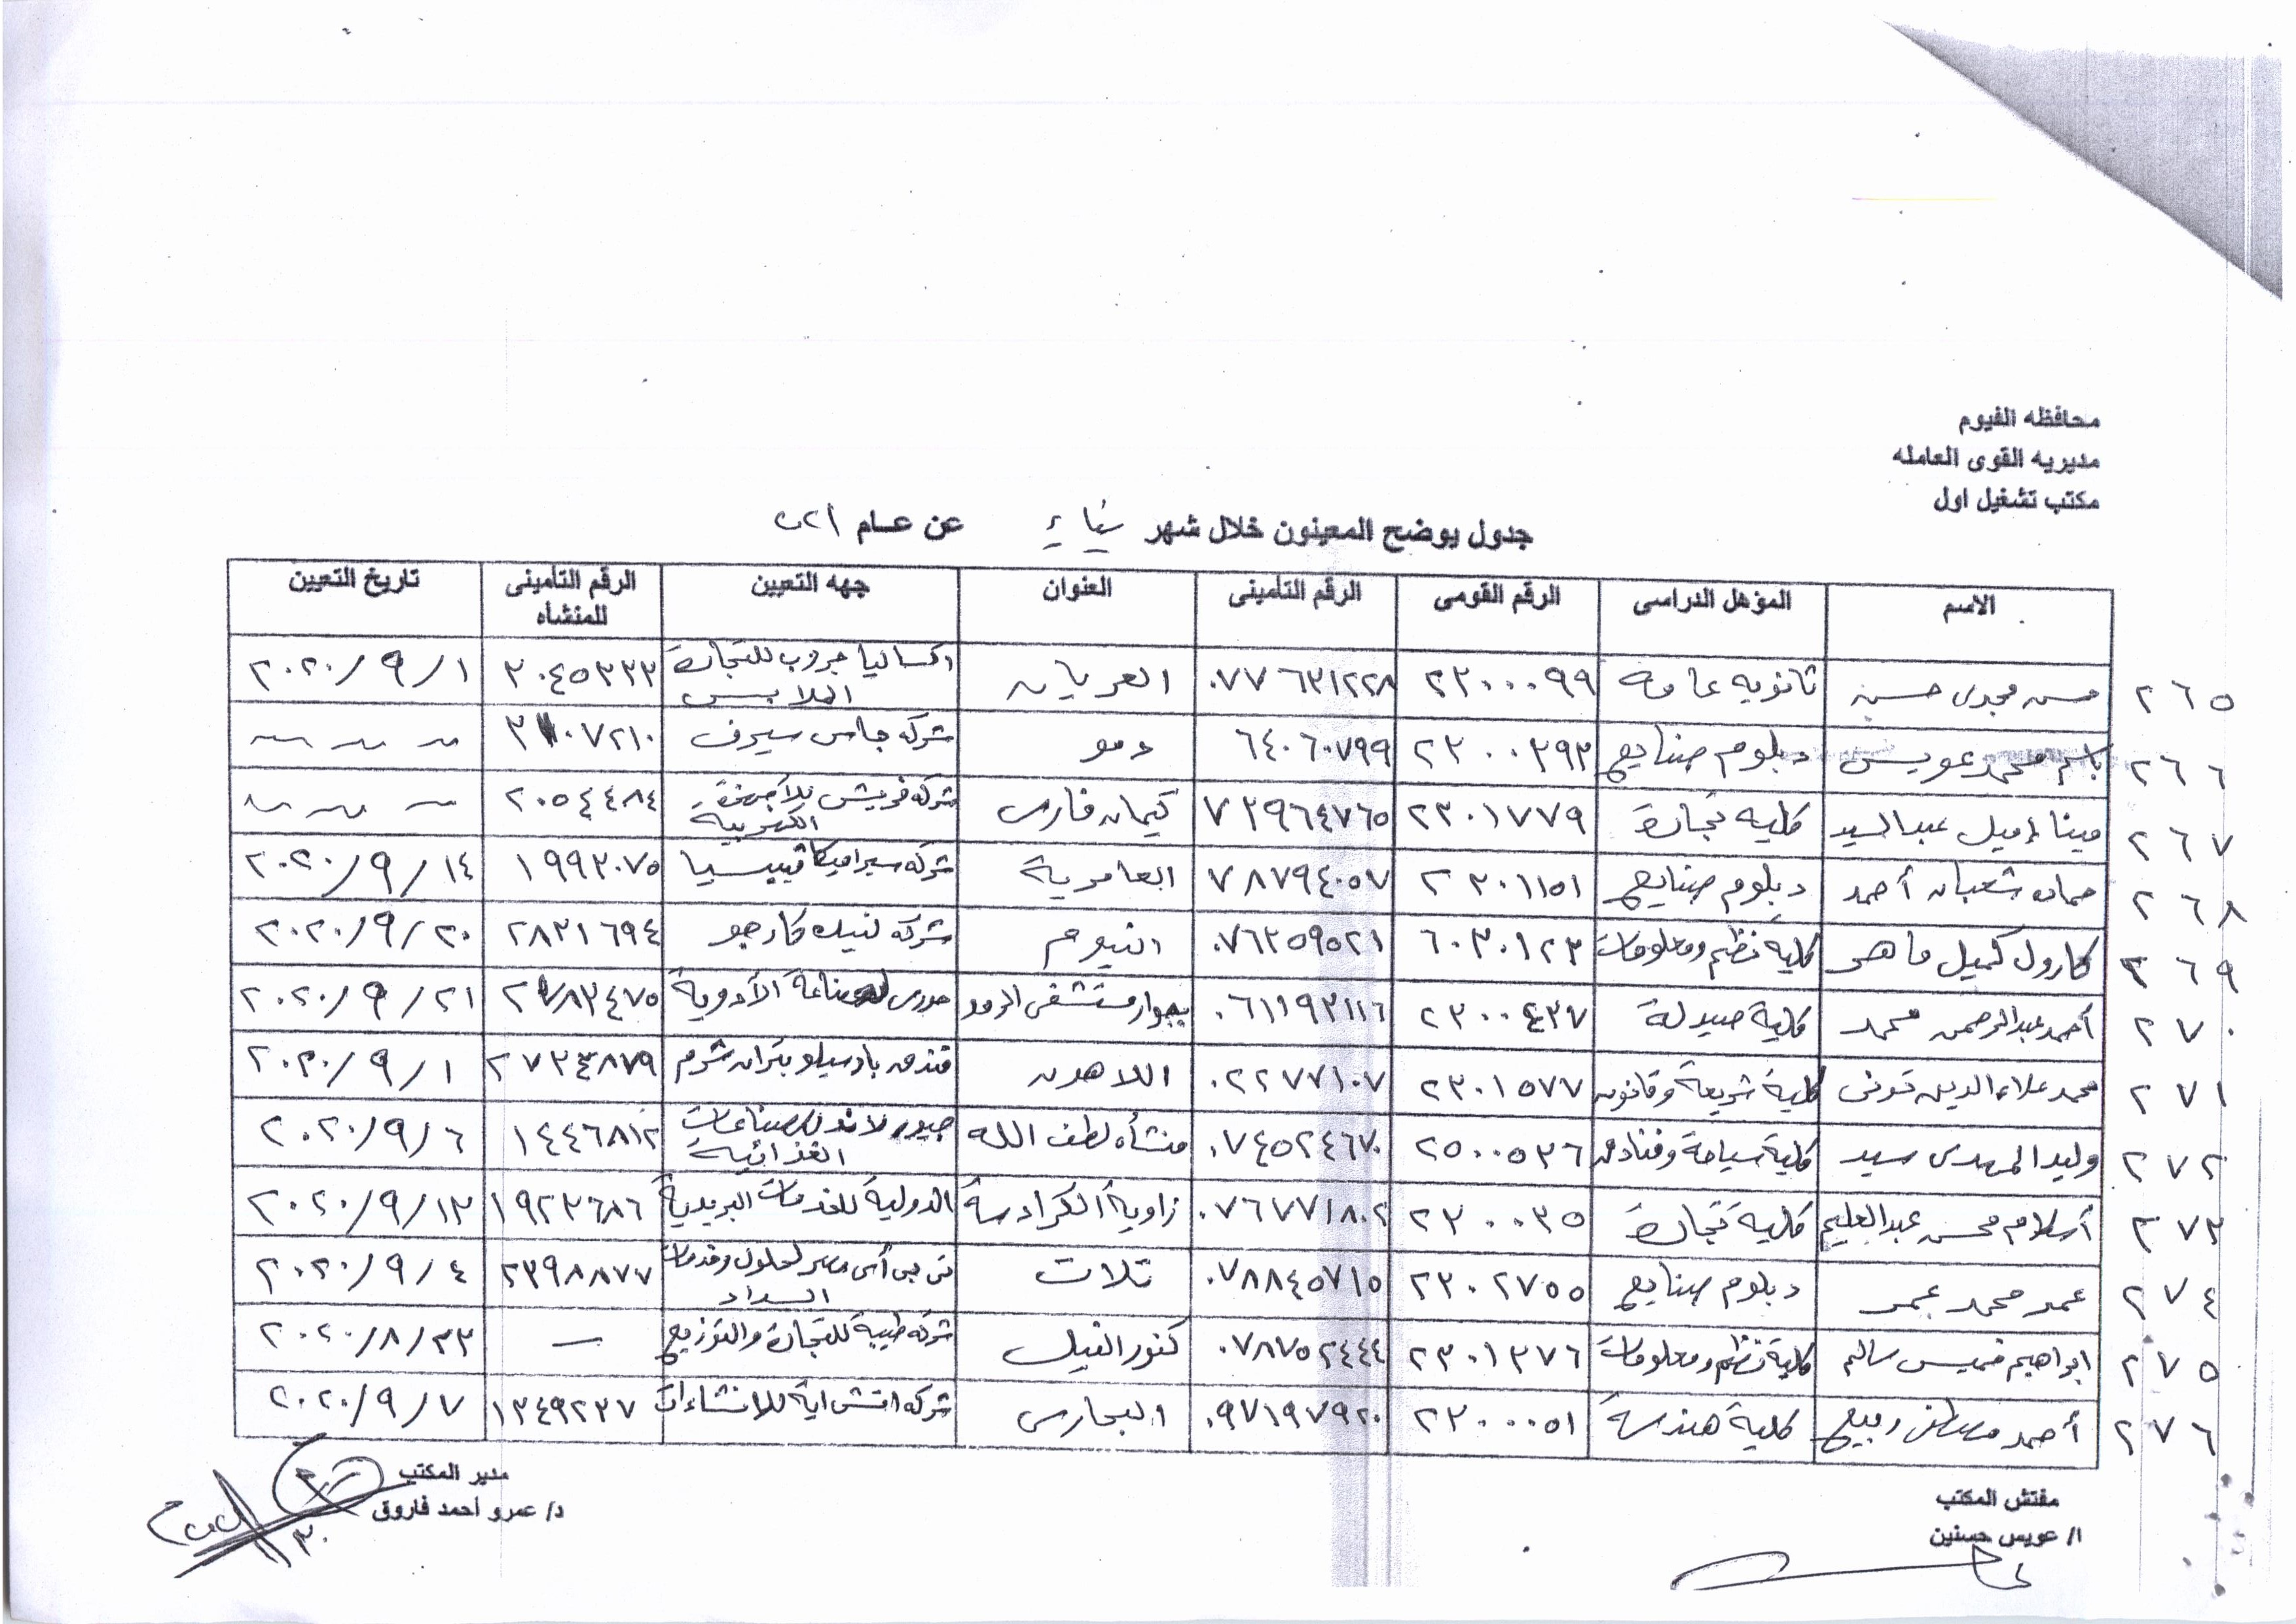 محافظه الفيوم
مديريه القوى العامله
مكتب تشغيل اول
جدول يوضح المعينون خلال شهر عن عام
الاسم المؤهل الدراسى الرقم القومى الرقم التأمينى العنوان جهه التعيين الرقم التأمينى للمنشاه تاريخ التعيين
٢٦٥ حسن مجدى حسن ثانويه عامه ٢٣٠٠٠٩٩ ٠٧٧٦٣١٢٢٨ العريان جروب للتجارة الملابس ٣٠٤٥٣٣٣ ٢٠٢٠/٩/١
٢٦٦ باسم محمد عويس دبلوم صنايع ٢٣٠٠٣٩٣ ٦٤٠٦٠٧٩٩ دمو شركه جاس سيرف
٢٦٧ مينا إميل عبد السيد كليه تجارة ٢٣٠١٧٧٩ ٧٣٩٦٤٧٦٥ كيمان فارس شركه فريش للأجهزة الكهربية ٢٠٥٤٤٨٤
٢٦٨ شعبان أحمد دبلوم صنايع ٢٣٠١١٥١ ٧٨٧٩٤٠٥٧ العامرية شركه سيراميكا ١٩٩٣٠٧٥ ٢٠٢٠/٩/١٤
٢٦٩ كارول كميل ماهر كلية نظم ومعلومات ٦٠٣٠١٢٣ ٠٧٦٣٥٩٥٢١ الفيوم شركه كارجو ٢٨٣١٦٩٤ ٢٠٢٠/٩/٢٠
٢٧٠ أحمد عبدالرحمن محمد كلية صيدلة ٢٣٠٠٤٣٧ ٠٦١١٩٣١١٦ بجوار مستشفى الرمد لصناعة الأدوية ٢٠٢٠/٩/٢١
٢٧١ محمد علاء الدين تونى كلية شريعة وقانون ٢٣٠١٥٧٧ ٠٢٢٧٧١٠٧ اللاهون فندق شرم ٢٧٣٤٨٧٩ ٢٠٢٠/٩/١
٢٧٢ وليد المهدى سيد كلية سياحة وفنادق ٢٥٠٠٥٣٦ ٠٧٤٥٢٤٦٧٠ منشأه لطف الله للصناعات الغذائية ١٤٤٦٨١٢ ٢٠٢٠/٩/٦
٢٧٣ أسلام محسن عبد العليم كلية تجارة ٢٣٠٠٠٣٥ ٠٧٦٧٧١٨٠٢ زاوية الكرادسة الدولية للخدمات البريدية ١٩٢٣٦٨٦ ٢٠٢٠/٩/١٣
٢٧٤ عمر محمد عمر دبلوم صنايع ٢٣٠٢٧٥٥ ٠٧٨٨٤٥٧١٥ تلات مصر لحلول وخدمات السداد ٢٣٩٨٨٧٧ ٢٠٢٠/٩/٤
٢٧٥ ابراهيم خميس سالم كلية نظم ومعلومات ٢٣٠١٣٧٦ ٠٧٨٧٥٢٤٤٤ كنور النيل شركه طيبة للتجارة والتوزيع — ٢٠٢٠/٨/٢٣
٢٧٦ أحمد مصطفى ربيع كلية هندسة ٢٣٠٠٠٥١ ٠٩٧١٩٧٩٢٠ البحارى شركه اتش اية للانشاءات ١٣٤٩٢٣٧ ٢٠٢٠/٩/٧
مفتش المكتب مدير المكتب
ا/ عويس حسنين د/ عمرو أحمد فاروق